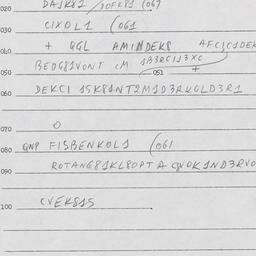 020 DAJK82 / JOFK81 (067
030 CIXDL1 (061
040 + QGL AMINDEK8 AFCJC1DEK
050 BEDG81VONT CM 1B3RCIJ3XC
051 +
060 DEKCI 15K81NT2M1D3RKOLD3R1
070 O
080 QNP FISBENKOL1 (061
090 ROTANG81KL80PTA
100 CVEK815